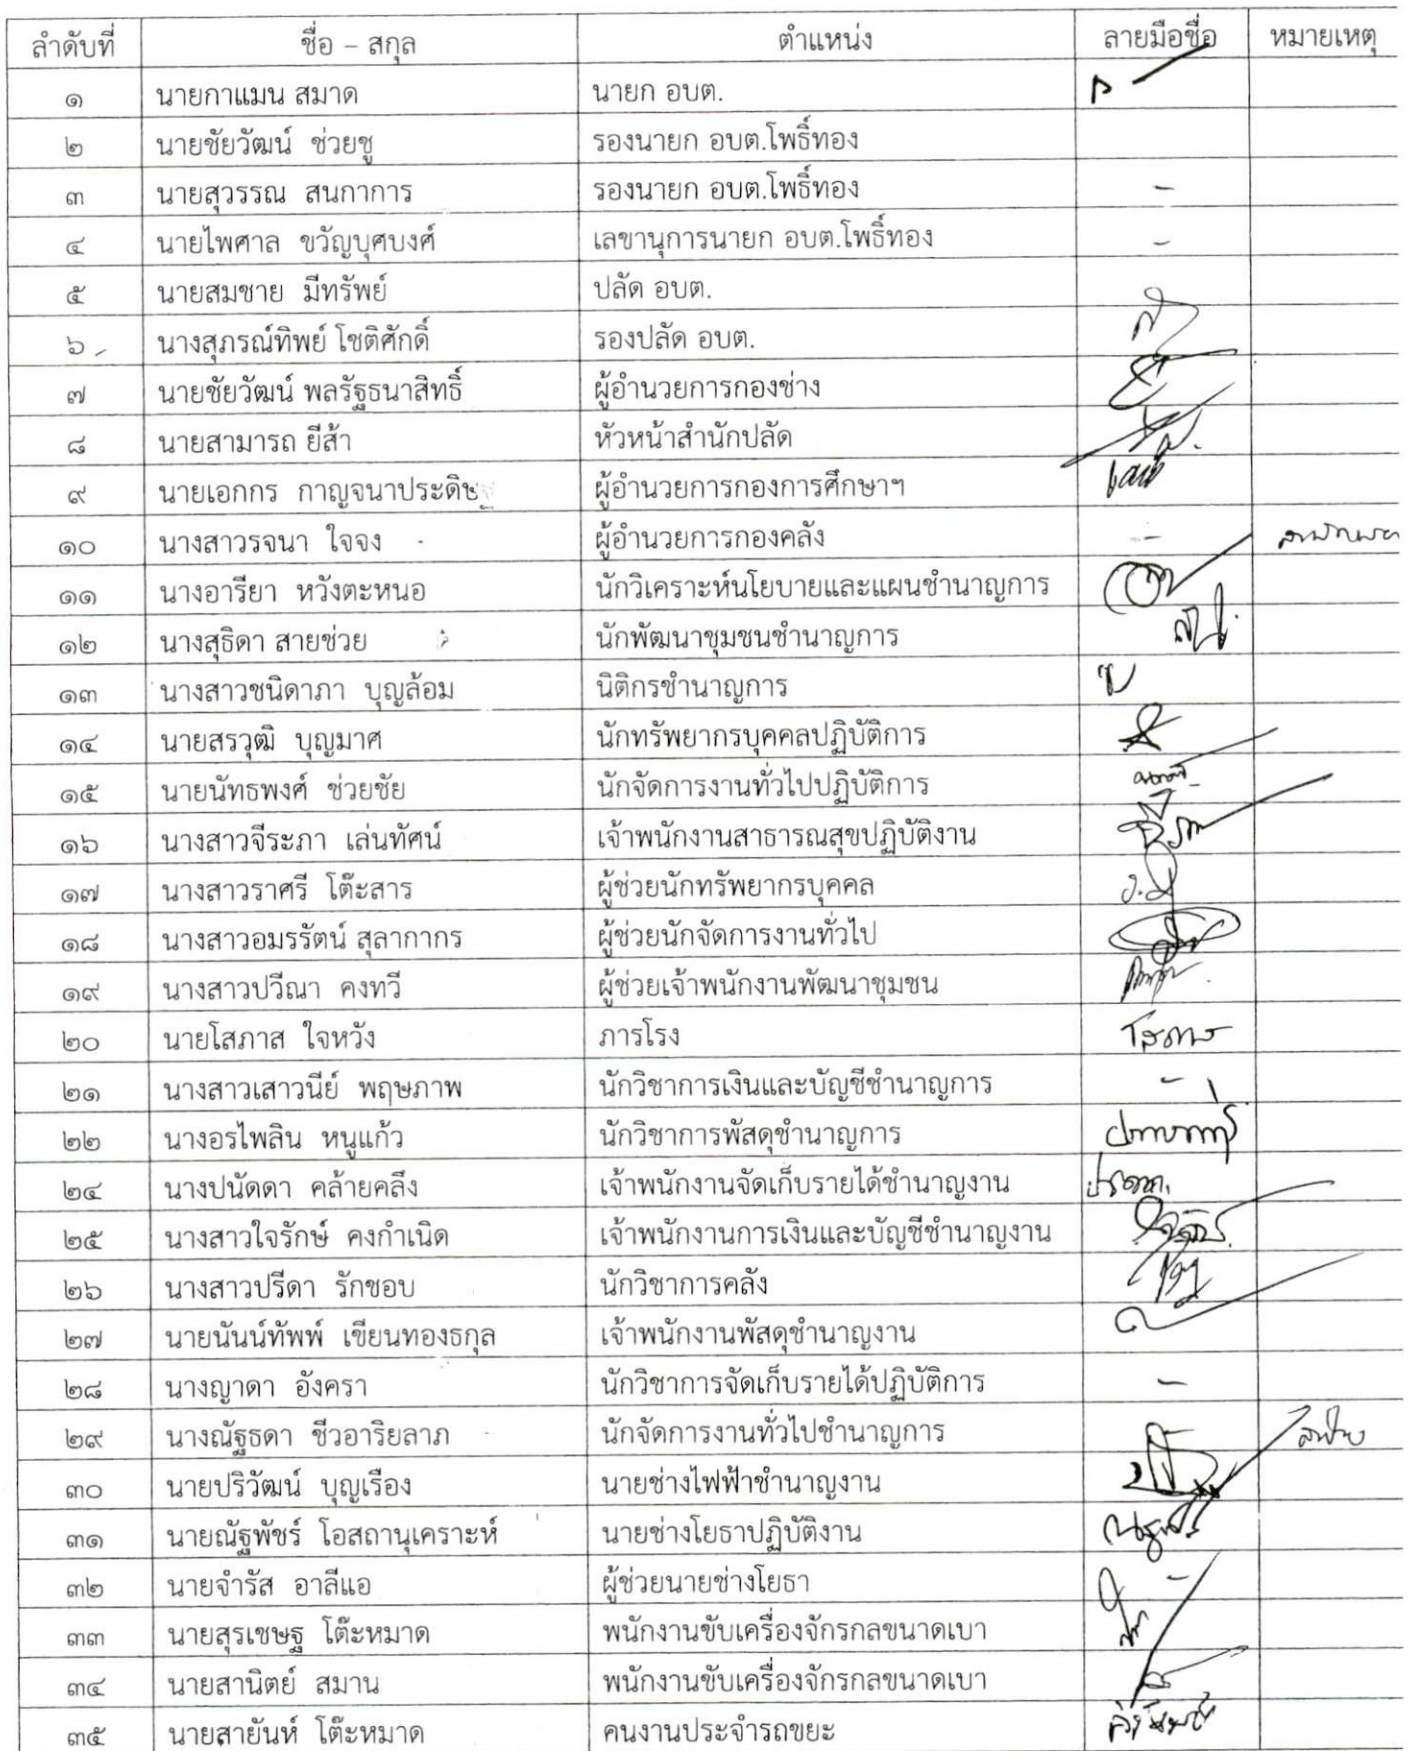 ลำดับที่ ชื่อ – สกุล ตำแหน่ง ลายมือชื่อ หมายเหตุ
๑ นายกาแมน สมาด นายก อบต.
๒ นายชัยวัฒน์ ช่วยชู รองนายก อบต.โพธิ์ทอง
๓ นายสุวรรณ สนกาการ รองนายก อบต.โพธิ์ทอง -
๔ นายไพศาล ขวัญบุศบงศ์ เลขานุการนายก อบต.โพธิ์ทอง -
๕ นายสมชาย มีทรัพย์ ปลัด อบต.
๖ นางสุภรณ์ทิพย์ โชติศักดิ์ รองปลัด อบต.
๗ นายชัยวัฒน์ พลรัฐธนาสิทธิ์ ผู้อำนวยการกองช่าง
๘ นายสามารถ ยีส้า หัวหน้าสำนักปลัด
๙ นายเอกกร กาญจนาประดิษฐ ผู้อำนวยการกองการศึกษาฯ
๑๐ นางสาวรจนา ใจจง ผู้อำนวยการกองคลัง -
๑๑ นางอารียา หวังตะหนอ นักวิเคราะห์นโยบายและแผนชำนาญการ
๑๒ นางสุธิดา สายช่วย นักพัฒนาชุมชนชำนาญการ
๑๓ นางสาวชนิดาภา บุญล้อม นิติกรชำนาญการ
๑๔ นายสรวุฒิ บุญมาศ นักทรัพยากรบุคคลปฏิบัติการ
๑๕ นายนัทธพงศ์ ช่วยชัย นักจัดการงานทั่วไปปฏิบัติการ
๑๖ นางสาวจีระภา เล่นทัศน์ เจ้าพนักงานสาธารณสุขปฏิบัติงาน
๑๗ นางสาวราศรี โต๊ะสาร ผู้ช่วยนักทรัพยากรบุคคล
๑๘ นางสาวอมรรัตน์ สุลากากร ผู้ช่วยนักจัดการงานทั่วไป
๑๙ นางสาวปวีณา คงทวี ผู้ช่วยเจ้าพนักงานพัฒนาชุมชน
๒๐ นายโสภาส ใจหวัง ภารโรง โสภาส
๒๑ นางสาวเสาวนีย์ พฤษภาพ นักวิชาการเงินและบัญชีชำนาญการ -
๒๒ นางอรไพลิน หนูแก้ว นักวิชาการพัสดุชำนาญการ
๒๔ นางปนัดดา คล้ายคลึง เจ้าพนักงานจัดเก็บรายได้ชำนาญงาน
๒๕ นางสาวใจรักษ์ คงกำเนิด เจ้าพนักงานการเงินและบัญชีชำนาญงาน
๒๖ นางสาวปรีดา รักชอบ นักวิชาการคลัง
๒๗ นายนันน์ทัพพ์ เขียนทองธกุล เจ้าพนักงานพัสดุชำนาญงาน
๒๘ นางญาดา อังครา นักวิชาการจัดเก็บรายได้ปฏิบัติการ -
๒๙ นางณัฐธดา ชีวอาริยลาภ นักจัดการงานทั่วไปชำนาญการ ลาป่วย
๓๐ นายปริวัฒน์ บุญเรือง นายช่างไฟฟ้าชำนาญงาน
๓๑ นายณัฐพัชร์ โอสถานุเคราะห์ นายช่างโยธาปฏิบัติงาน
๓๒ นายจำรัส อาลีแอ ผู้ช่วยนายช่างโยธา -
๓๓ นายสุรเชษฐ โต๊ะหมาด พนักงานขับเครื่องจักรกลขนาดเบา
๓๔ นายสานิตย์ สมาน พนักงานขับเครื่องจักรกลขนาดเบา
๓๕ นายสายันห์ โต๊ะหมาด คนงานประจำรถขยะ